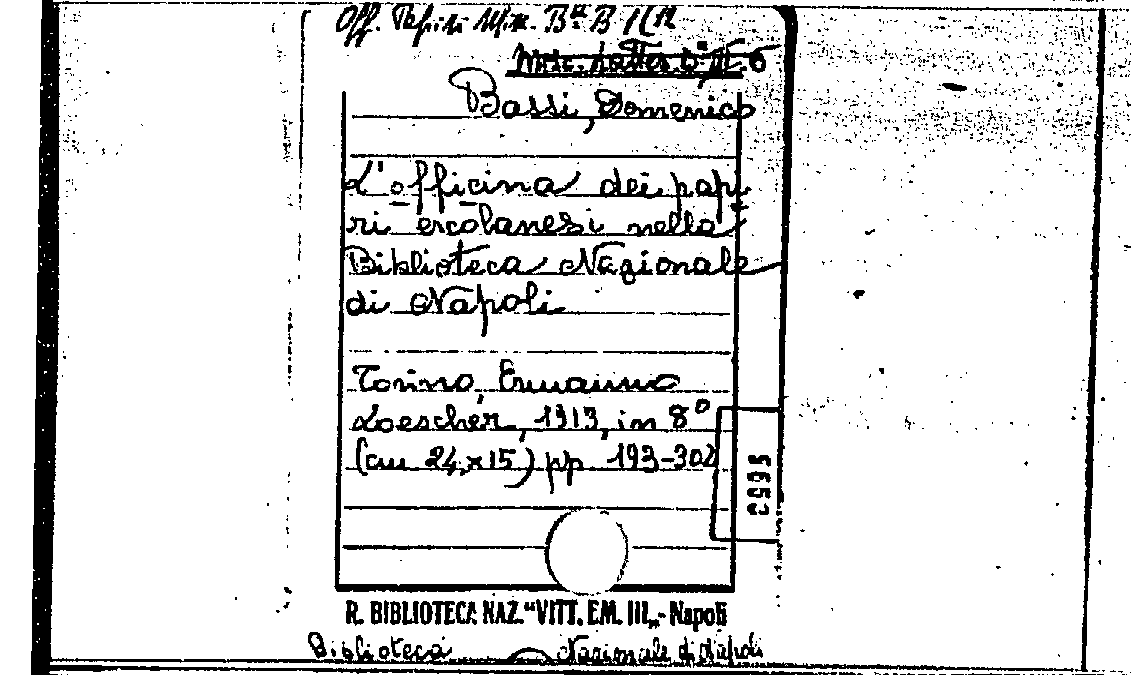 Off. Papiri Misc. Bᵗᵃ B 1(12
Misc. Lattes
Bassi, Domenico
L'officina dei papi
ri ercolanesi nella
Biblioteca Nazionale
di Napoli
Torino, Ermanno
Loescher, 1913, in 8º
(cm 24,x15) pp 193-302
R. BIBLIOTECA NAZ. "VITT. EM. III„ - Napoli
Biblioteca Nazionale di Napoli